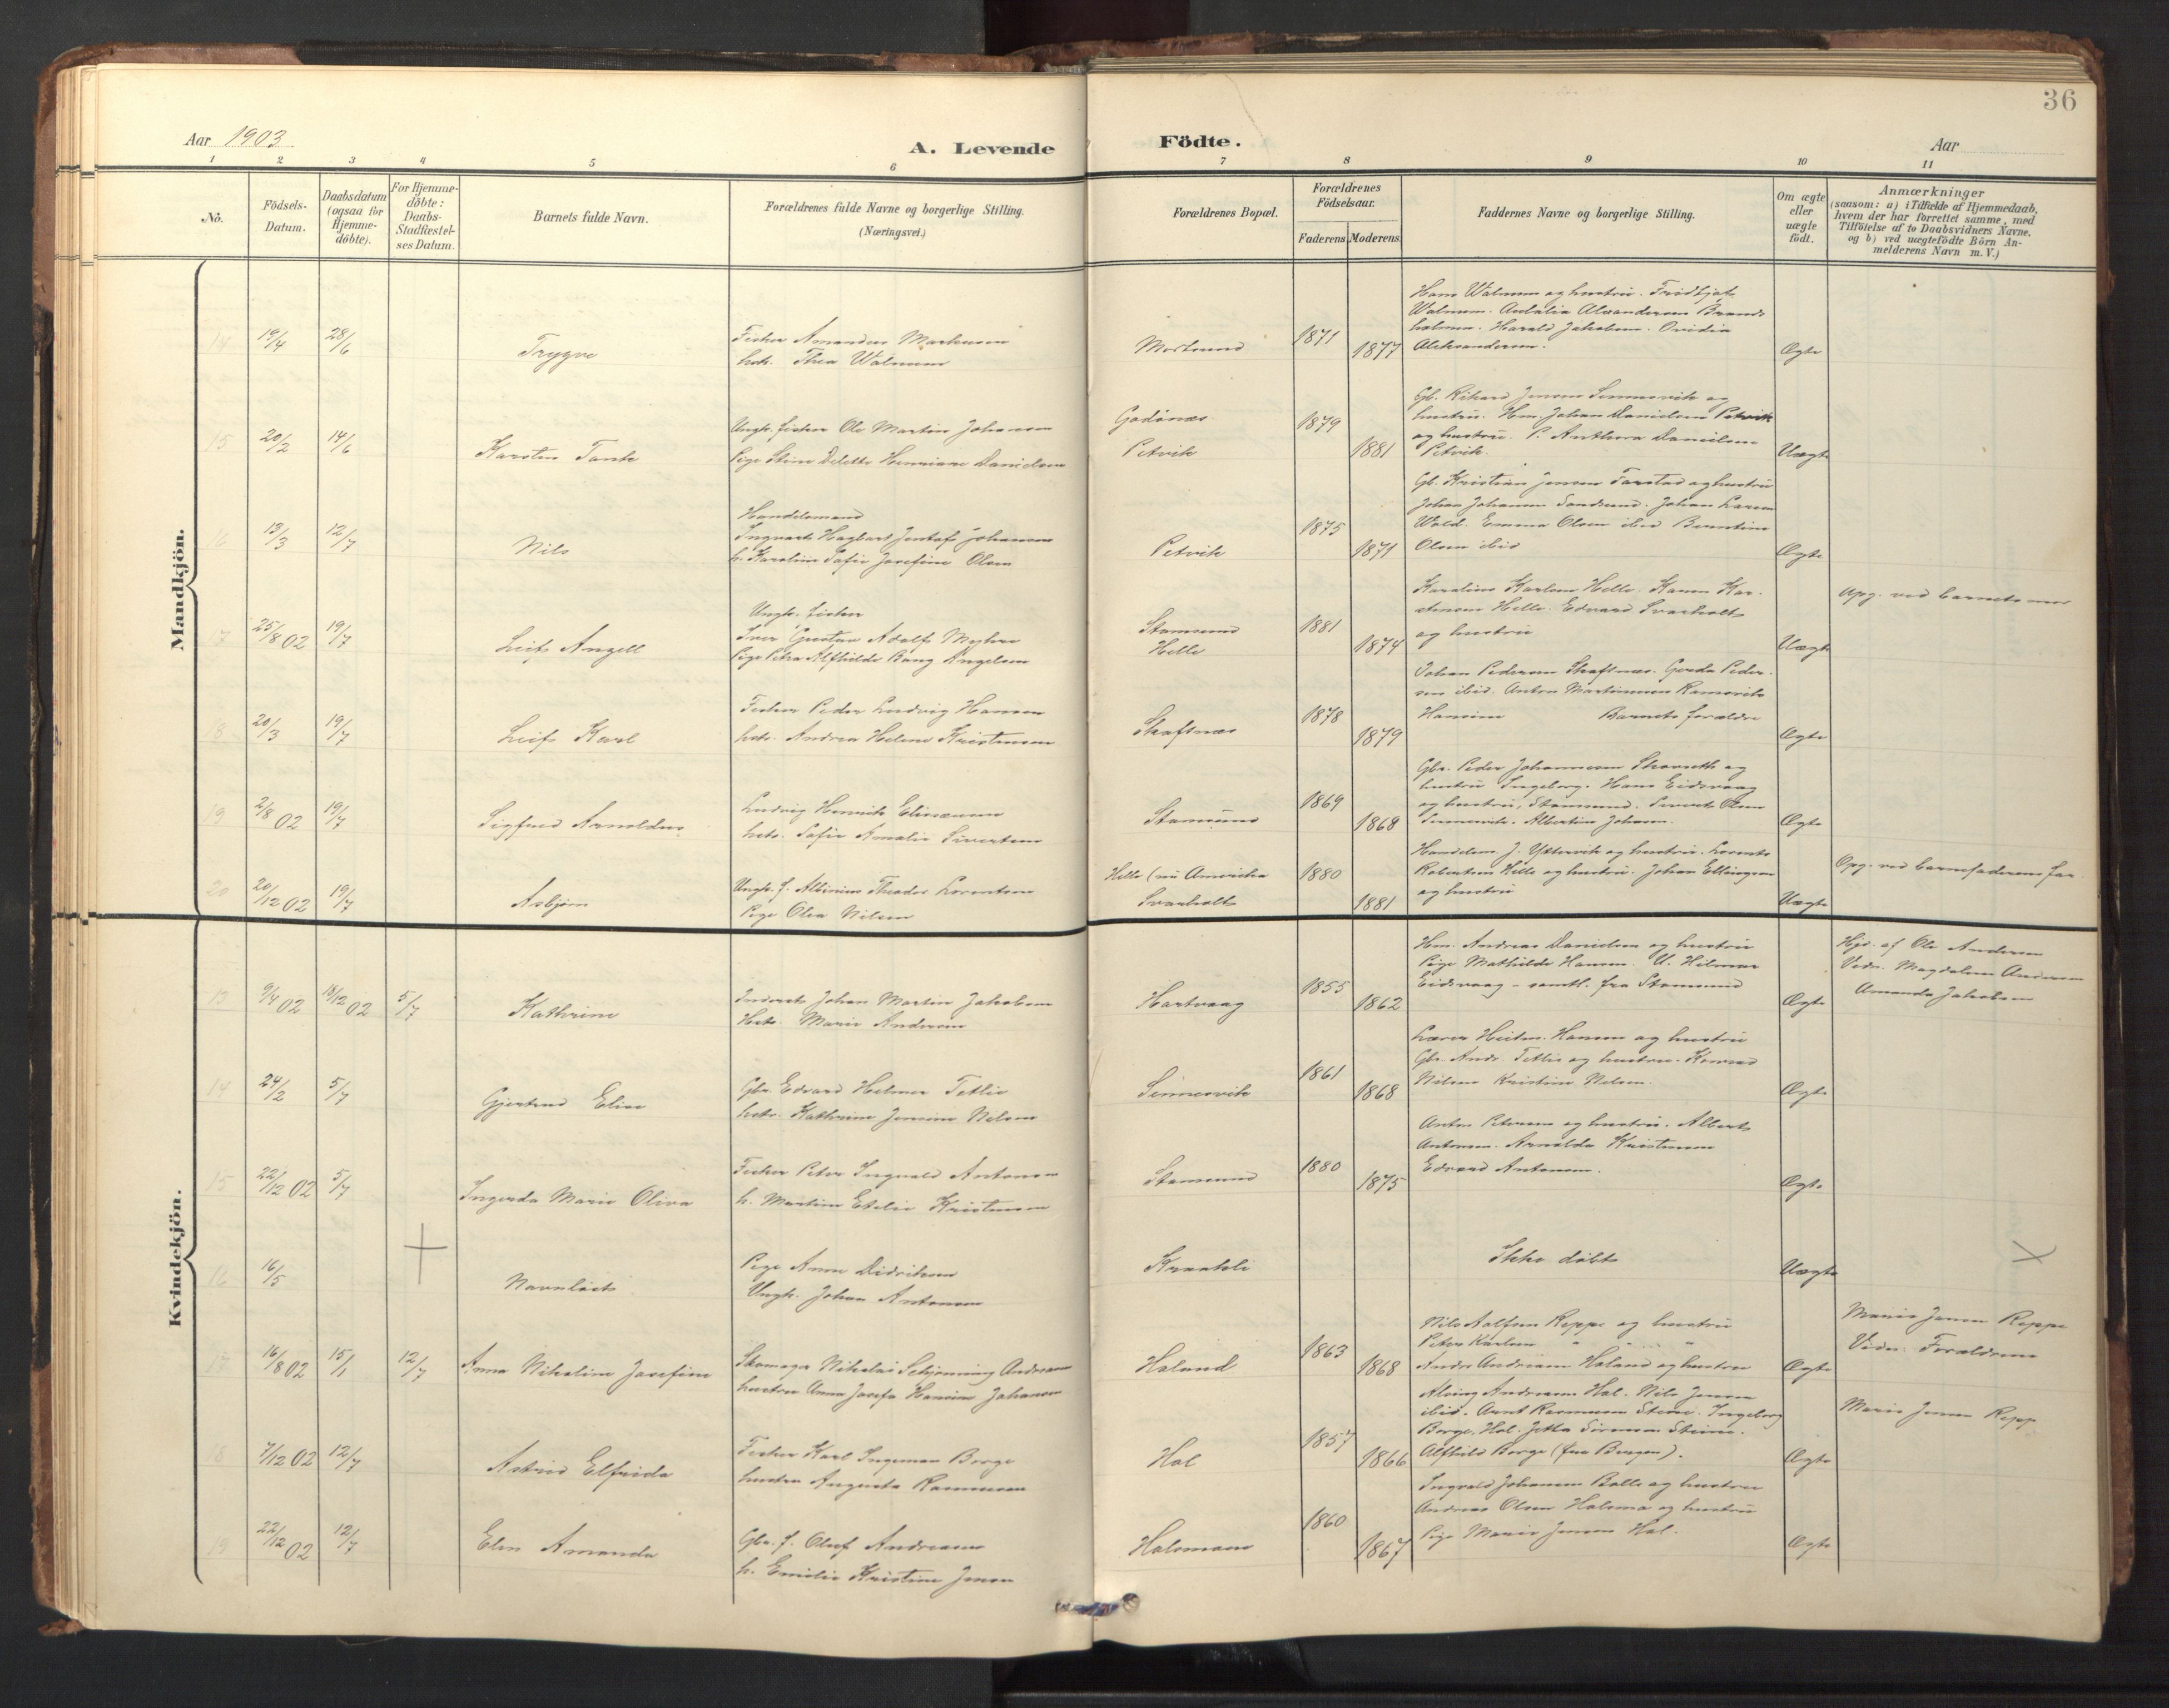 36
Aar 1903
A. Levende Födte.
Aar
1 2 3 4 5 6 7 8 9 10 11
No.
Födsels-
Datum.
Daabsdatum
(ogsaa for
Hjemme-
döbte).
For Hjemme-
döbte:
Daabs-
Stadfæstel-
ses Datum.
Barnets fulde Navn.
Forældrenes fulde Navne og borgerlige Stilling.
(Næringsvei.)
Forældrenes Bopæl.
Forældrenes
Födselsaar.
Faderens Moderens
Faddernes Navne og borgerlige Stilling.
Om ægte
eller
uægte
födt.
Anmærkninger
(saasom: a) i Tilfælde af Hjemmedaab,
hvem der har forrettet samme, med
Tilföielse af to Daabsvidners Navne,
og b) ved uægtefödte Börn An-
melderens Navn m. V.)
Mandkjön.
14 19/4 28/6 Trygve
Fisker Amandus Markusen
hst. Thea Walnum
Mortsund 1871 1877
Hans Walnum og hustru. Fridtjof
Walnum. Alexandersen
Harald Jakobsen. Ovidia
Aleksandersen.
Ægte
15 20/2 14/6 Karsten Tank
Ungk. fisker Ole Martin Johansen
Pige Stine Delette Henriane Danielsen
Godönæs
Petvik 1879 1881
Gb. Rikard Jensen Sennesvik og
hustru. Hm. Johan Danielsen Petvik
og hustru. P. Anthora Danielsen
Petvik.
Uægte
16 13/3 12/7 Nils
Handelsmand
Ingvart Hagbart Gustaf Johansen
h. Karoline Sofie Josefine Olsen
Petvik 1875 1871
Gb. Kristian Jensen Farstad og hustru
Johan Johansen Sandsund. Johan Larsen
Wold. Emma Olsen ibid Berntine
Olsen ibid
Ægte
17 25/8 02 19/7 Leif Angell
Ungk. fisker
Iver Gustav Adolf Myhre
Pige Petra Alfhilde Bang Angelsen
Stamsund
Helle 1881 1874
Karoline Karlsen Helle. Karen Kar-
Helle. Edvard Svarholt
og hustru
Uægte
Opg. ved barnets mor
18 20/3 19/7 Leif Karl
Fisker Peder Ludvig Hansen
hst. Andrea Helene Kristensen
Skaftnæs 1878 1879
Johan Pedersen Skaftnæs. Gerda Peder-
sen ibid. Anton Martinussen Ramsvik
Hansine Barnets forældre
Ægte
19 2/8 02 19/7 Sigfred Arnoldus
Ludvig Henrik Eliassen
hst. Sofie Amalie Sivertsen
Stamsund 1869 1868
Gbr. Peder Johannesen Skarseth og
hustru Ingeborg. Hans Eidsvaag
og hustru, Stamsund. Sivert Olsen
Sennesvik. Albertine Johansen.
Ægte
20 20/12 02 19/7 Asbjörn
Ungk. f. Albinius Theodor Lorentsen
Pige Olea Nilsen
Helle (nu Amerika
Svarholt 1880 1881
Handelsm. J. Yttervik og hustru. Lorents
Robertsen Helle og hustru. Johan Ellingsen
og hustru
Uægte
Opg. ved barnefaderens far
Kvindekjön.
13 9/4 02 18/12 02 5/7 Kathrine
Inderst Johan Martin Jakobsen
Hst. Marie Andersen
Hartvaag 1855 1862
Hm. Andreas Danielsen og hustru
Pige Mathilde Hansen. U. Hilmar
Eidsvaag - samtl. fra Stamsund
Ægte
Hjd. af Ole Andersen
Vidn. Magdalena Andersen
Amanda Jakobsen
14 24/2 5/7 Gjertrud Elise
Gbr. Edvard Helmer Tetlie
hst. Kathrine Jensine Nilsen
Sennesvik 1861 1868
Lærer Hansen og hustru
Gbr. Andr. Tetlie og hustru. Konrad
Nilsen Kristine Nilsen.
Ægte
15 22/12 02 5/7 Ingerda Marie Oliva
Fisker Peter Ingvald Antonsen
h. Martine Etelie Kristensen
Stamsund 1880 1875
Anton Petersen og hustru. Albert
Antonsen. Arnolda Kristensen
Edvard Antonsen.
Ægte
16 16/5 + Navnlöst
Pige Anne Didriksen
Ungk. Johan Antonsen
Kraakli
Ikke döbt
Uægte
X
17 16/8 02 15/1 12/7 Anna Nikoline Josefine
Skomager Nikolai Schjönning Andreasen
hustru Anna Josefa Hansine Johansen
Holand 1863 1868
Nils Adolfsen Reppe og hustru
Peter Karlsen " "
Andr. Andreasen Holand og hustru
Ægte
Marie Jensen Reppe
Vidn. Forældrene
18 7/12 02 12/7 Astrid Elfrida
Fisker Karl Ingeman Borge
hustru Augusta Rasmussen
Hol 1857 1866
Andreasen Hol. Nils Jensen
ibid. Arnt Rasmussen Steine. Ingeborg
Borge, Hol. Jetta Sörensen Steine.
Alfhild Borge (fra Bergen).
Ægte
Marie Jensen Repp
19 22/12 02 12/7 Elen Amanda
Gbr. f. Oluf Andreasen
h. Emilie Kristine Jensen
Holsmoen 1860 1867
Ingvald Johansen Balle og hustru
Andreas Olsen Holsmo og hustru
Pige Marie Jensen Hol.
Ægte